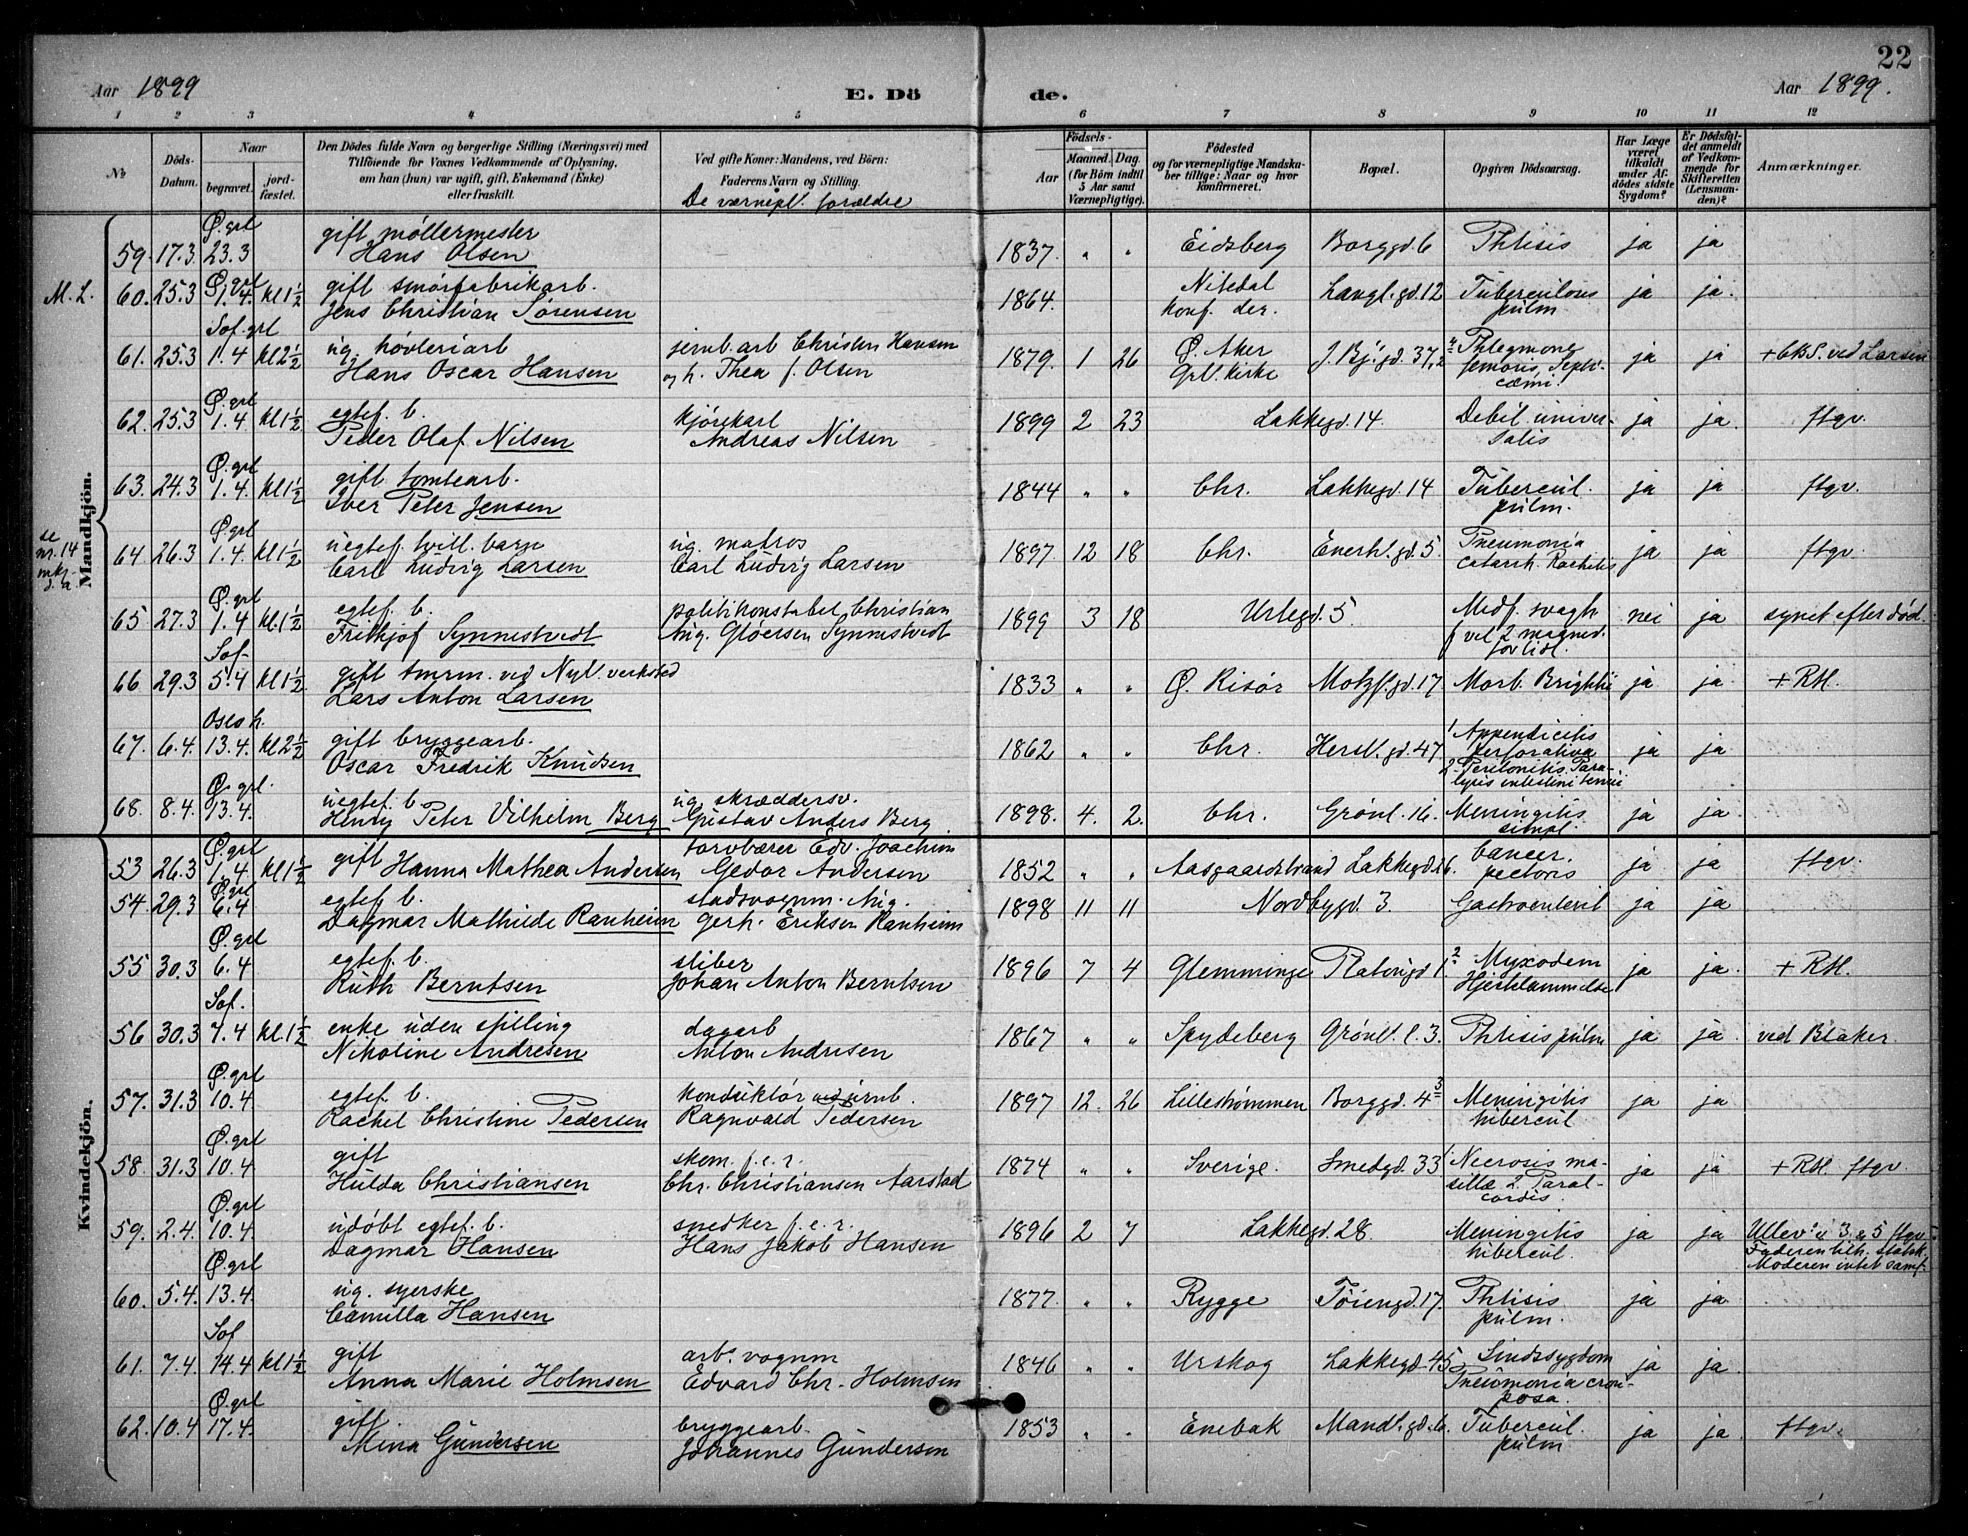 22
Aar 1899
E. Dö
de.
Aar 1899.
1 2 3 4 5 6 7 8 9 10 11 12
No
Döds-Datum.
Naar
begravet. jord-fæstet.
Den Dödes fulde Navn og borgerlige Stilling (Næringsvei) med
Tilföiende for Voxnes Vedkommende af Oplysning,
om han (hun) var ugift, gift, Enkemand (Enke)
eller fraskilt.
Ved gifte Koner: Mandens, ved Börn:
Faderens Navn og Stilling.
De værnepl. forældre
Födsels-
Aar
Maaned. Dag.
(for Börn indtil
5 Aar samt
Værnepligtige).
Födested
og for værnepligtige Mandska-
ber tillige: Naar og hvor
konfirmeret.
Bopæl.
Opgiven Dödsaarsag.
Har Læge
været
tilkaldt
under Af-
dödes sidste
Sygdom?
Er Dödsfal-
det anmeldt
af Vedkom-
mende for
Skifteretten
(Lensman-
den)?
Anmærkninger.
Mandkjön.
Ø. grl gift møllermester
59. 17.3 23.3 Hans Olsen 1837. " " Eidsberg Borggd. 6 Phtisis ja ja
M. L. 60. 25.3 Ø. grl 1.4. kl 1½ gift smørfabrikarb. 1864. Nitedal Langl. gd. 12 Tuberculous ja ja.
Jens Christian Sørensen konf. der. pulm
Sof. grl
61. 25.3 1.4 kl 2½ ug. høvleriarb jernb. arb Christen Hansen 1879. 1 26 Ø. Aker J. Bj. gd. 37, 2 Phlegmone ja ja + CBS. ved Larsen
Hans Oscar Hansen og h. Thea f. Olsen Grl. kirke femoris, Septi-
cæmi
Ø. grl egtef. b. kjørekarl
62. 25.3 1.4 kl 1½ Peder Olaf Nilsen Andreas Nilsen 1899 2 23 Lakkegd. 14. Debil. univer- ja ja. ftgv.
salis
Ø. grl gift tomtearb.
63. 24.3 1.4. kl 1½ Iver Peter Jensen 1844 " " Chr. Lakkegd. 14 Tubercul. ja ja ftgv.
pulm.
se nr. 14 mkj. d. a
Ø. grl uegtef. tvill. barn ug. matros
64 26.3 1.4. kl 1½ Carl Ludvig Larsen Carl Ludvig Larsen 1897. 12 18 Chr. Enerh. gd. 5. Pneumonia ja ja ftgv.
catarrh. Rachitis
Ø. grl egtef. b. politikonstabel Christian
65 27.3 1.4 kl. 1½ Frithjof Synnestvedt Aug. Gløersen Synnestvedt 1899 3 18 Urtegd. 5. Medf. svagh nei ja synet efter død.
f vel 2 maaned.
for tidl.
Sof. gift tmrm. ved Nyl. verksted
66 29.3 5.4 kl 1½. Lars Anton Larsen 1833 " " Ø. Risør Motzf. gd. 17 Morb. Brightii ja ja. + RH.
Oslo h. gift bryggearb.
67. 6.4. 13.4. kl 2½ Oscar Fredrik Knudsen 1862 " " Chr. Hersl. gd. 47. 1 Appendicitis ja ja
perforativa
2 Peritonitis. Para-
lysis intestini tenui
Ø. grl. uegtef. b ug. skræddersv.
68. 8.4. 13.4. Henry Peter Vilhelm Berg Gustav Anders Berg 1898. 4. 2. Chr. Grønl. 16. Meningitis ja ja.
simpl.
Kvindekjön.
Ø. grl torvbærer Edv. Joachim
53 26.3 1.4 kl 1½ gift Hanna Mathea Andersen Gedor Andersen 1852 " " Aasgaardstrand Lakkegd. 26. Cancer. ja ja ftgv.
pectoris
Ø. grl egtef. b. stadsvognm. Aug.
54. 29.3 6.4 Dagmar Mathilde Ranheim Gerh. Eriksen Ranheim 1898 11 11 Nordbygd. 3. Gastroenterit ja ja
Ø. grl egtef. b. sliber
55 30.3 6.4 Ruth Berntsen Johan Anton Berntsen 1896 7 4 Glemminge Platougd 1. 2 Myxødem ja ja. + RH.
Hjertelammelse
Sof. enke uden stilling dagarb
56 30.3 7.4 kl 1½ Nikoline Andresen Anton Andresen 1867 " " Spydeberg Grønl. l. 3. Phtisis pulm ja ja. ved Blaker.
Ø. grl egtef. b. konduktør ved jernb.
57. 31.3 10.4 Rachel Christine Pedersen Ragnvald Pedersen 1897 12. 26 Lillestrømmen Borggd. 43 Meningitis ja ja
tubercul
Ø. grl gift skom. f. e. r.
58. 31.3 10.4. Hulda Christiansen Chr. Christiansen Aarstad 1874 " " Sverige. Smedgd. 33 1 Necrosis ma- ja ja + RH. ftgv.
xillæ 2. Paral-
cordis.
Ø. grl udøbt egtef. b. snedker f. e. r.
59. 2.4. 10.4. Dagmar Hansen Hans Jakob Hansen 1896 2 7 Lakkegd. 28. Meningitis ja ja Ullev. 3 5 ftgv.
tubercul. Faderen tilh. statsk.
Moderen intet samf.
Ø. grl ug. syerske
60. 5.4. 13.4. Camilla Hansen 1877. " " Rygge Tøiengd. 17. Phtisis ja ja.
pulm.
Sof gift arb. vognm
61. 7.4. 14.4 kl 1½ Anna Marie Holmsen Edvard Chr. Holmsen 1846 " " Urskog Lakkegd. 45 Sindssygdom ja ja.
Pneumonia crou-
posa.
Ø. grl gift. bryggearb.
62. 10.4 17.4. Mina Gundersen Johannes Gundersen 1853 " " Enebak Mandl. gd. 6. Tubercul. ja ja. ftgv.
pulm.